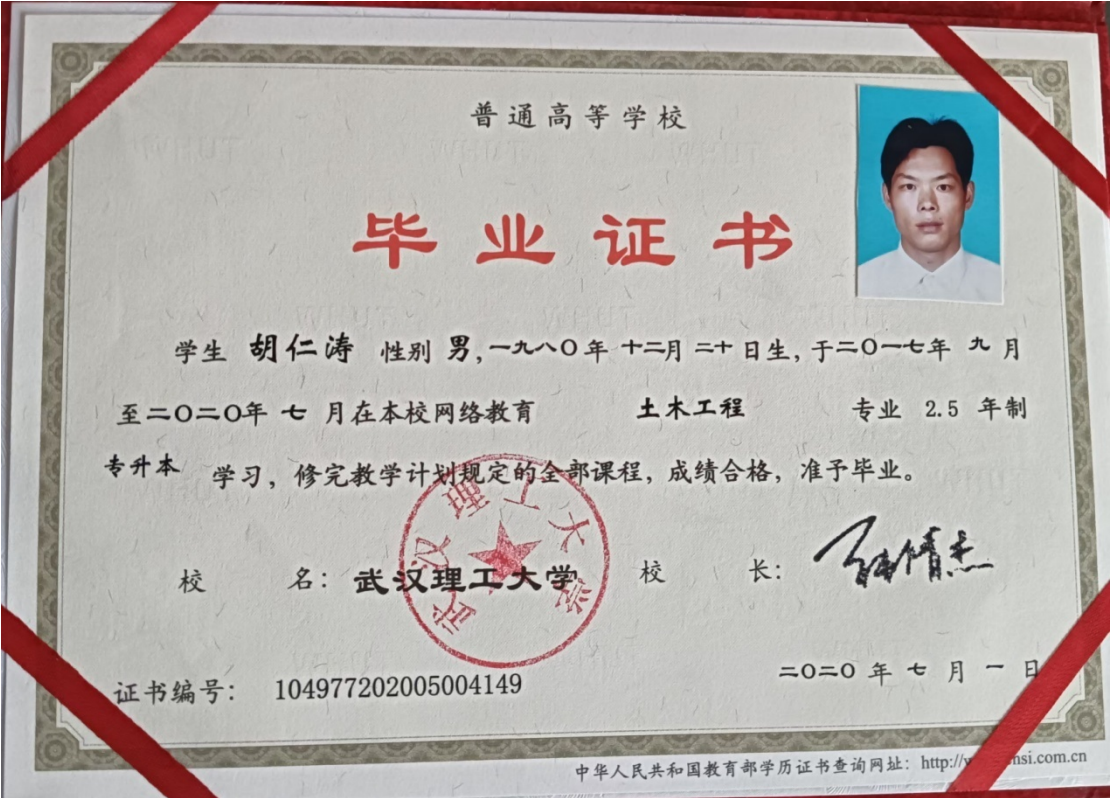 普通高等学校
毕业证书
学生 胡仁涛 性别 男，一九八〇年 十二月 二十日生，于二〇一七年 九月
至二〇二〇年 七 月在本校网络教育 土木工程 专业 2.5 年制
专升本 学习，修完教学计划规定的全部课程，成绩合格，准予毕业。
武汉理工大学
校 名：武汉理工大学 校 长：
证书编号：104977202005004149
二〇二〇 年 七 月 一 日
中华人民共和国教育部学历证书查询网址：http://w
si.com.cn